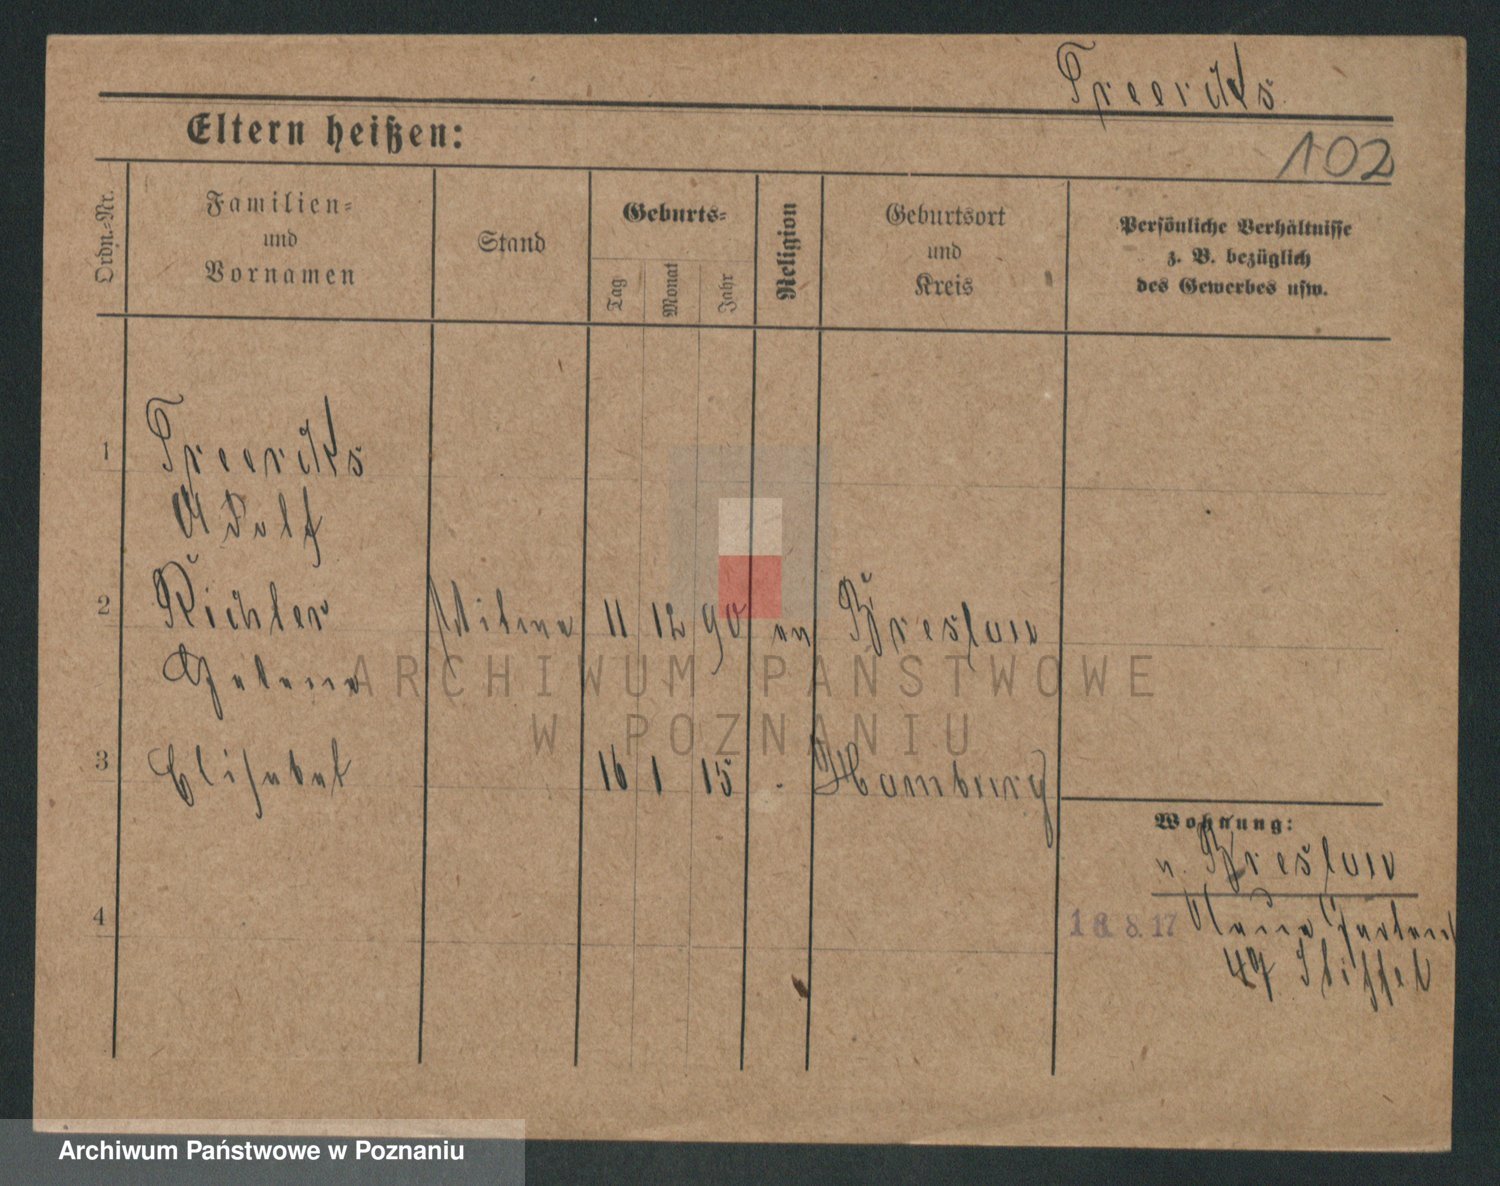 Freerks
102
Eltern heißen:
Ordn.-Nr.
Familien-
und
Vornamen
Stand
Geburts-
Tag
Monat
Jahr
Religion
Geburtsort
und
Kreis
Persönliche Verhältnisse
z. B. bezüglich
des Gewerbes usw.
1
Freerks
Adolf
2 Richler Witwe 11 12 90 ev Breslau
Helene
ARCHIWUM PAŃSTWOWE
W POZNANIU
3 Elisabet 16 1 15 Hamburg
Wohnung:
n. Breslau
4
18.8.17 Neue
47
Archiwum Państwowe w Poznaniu